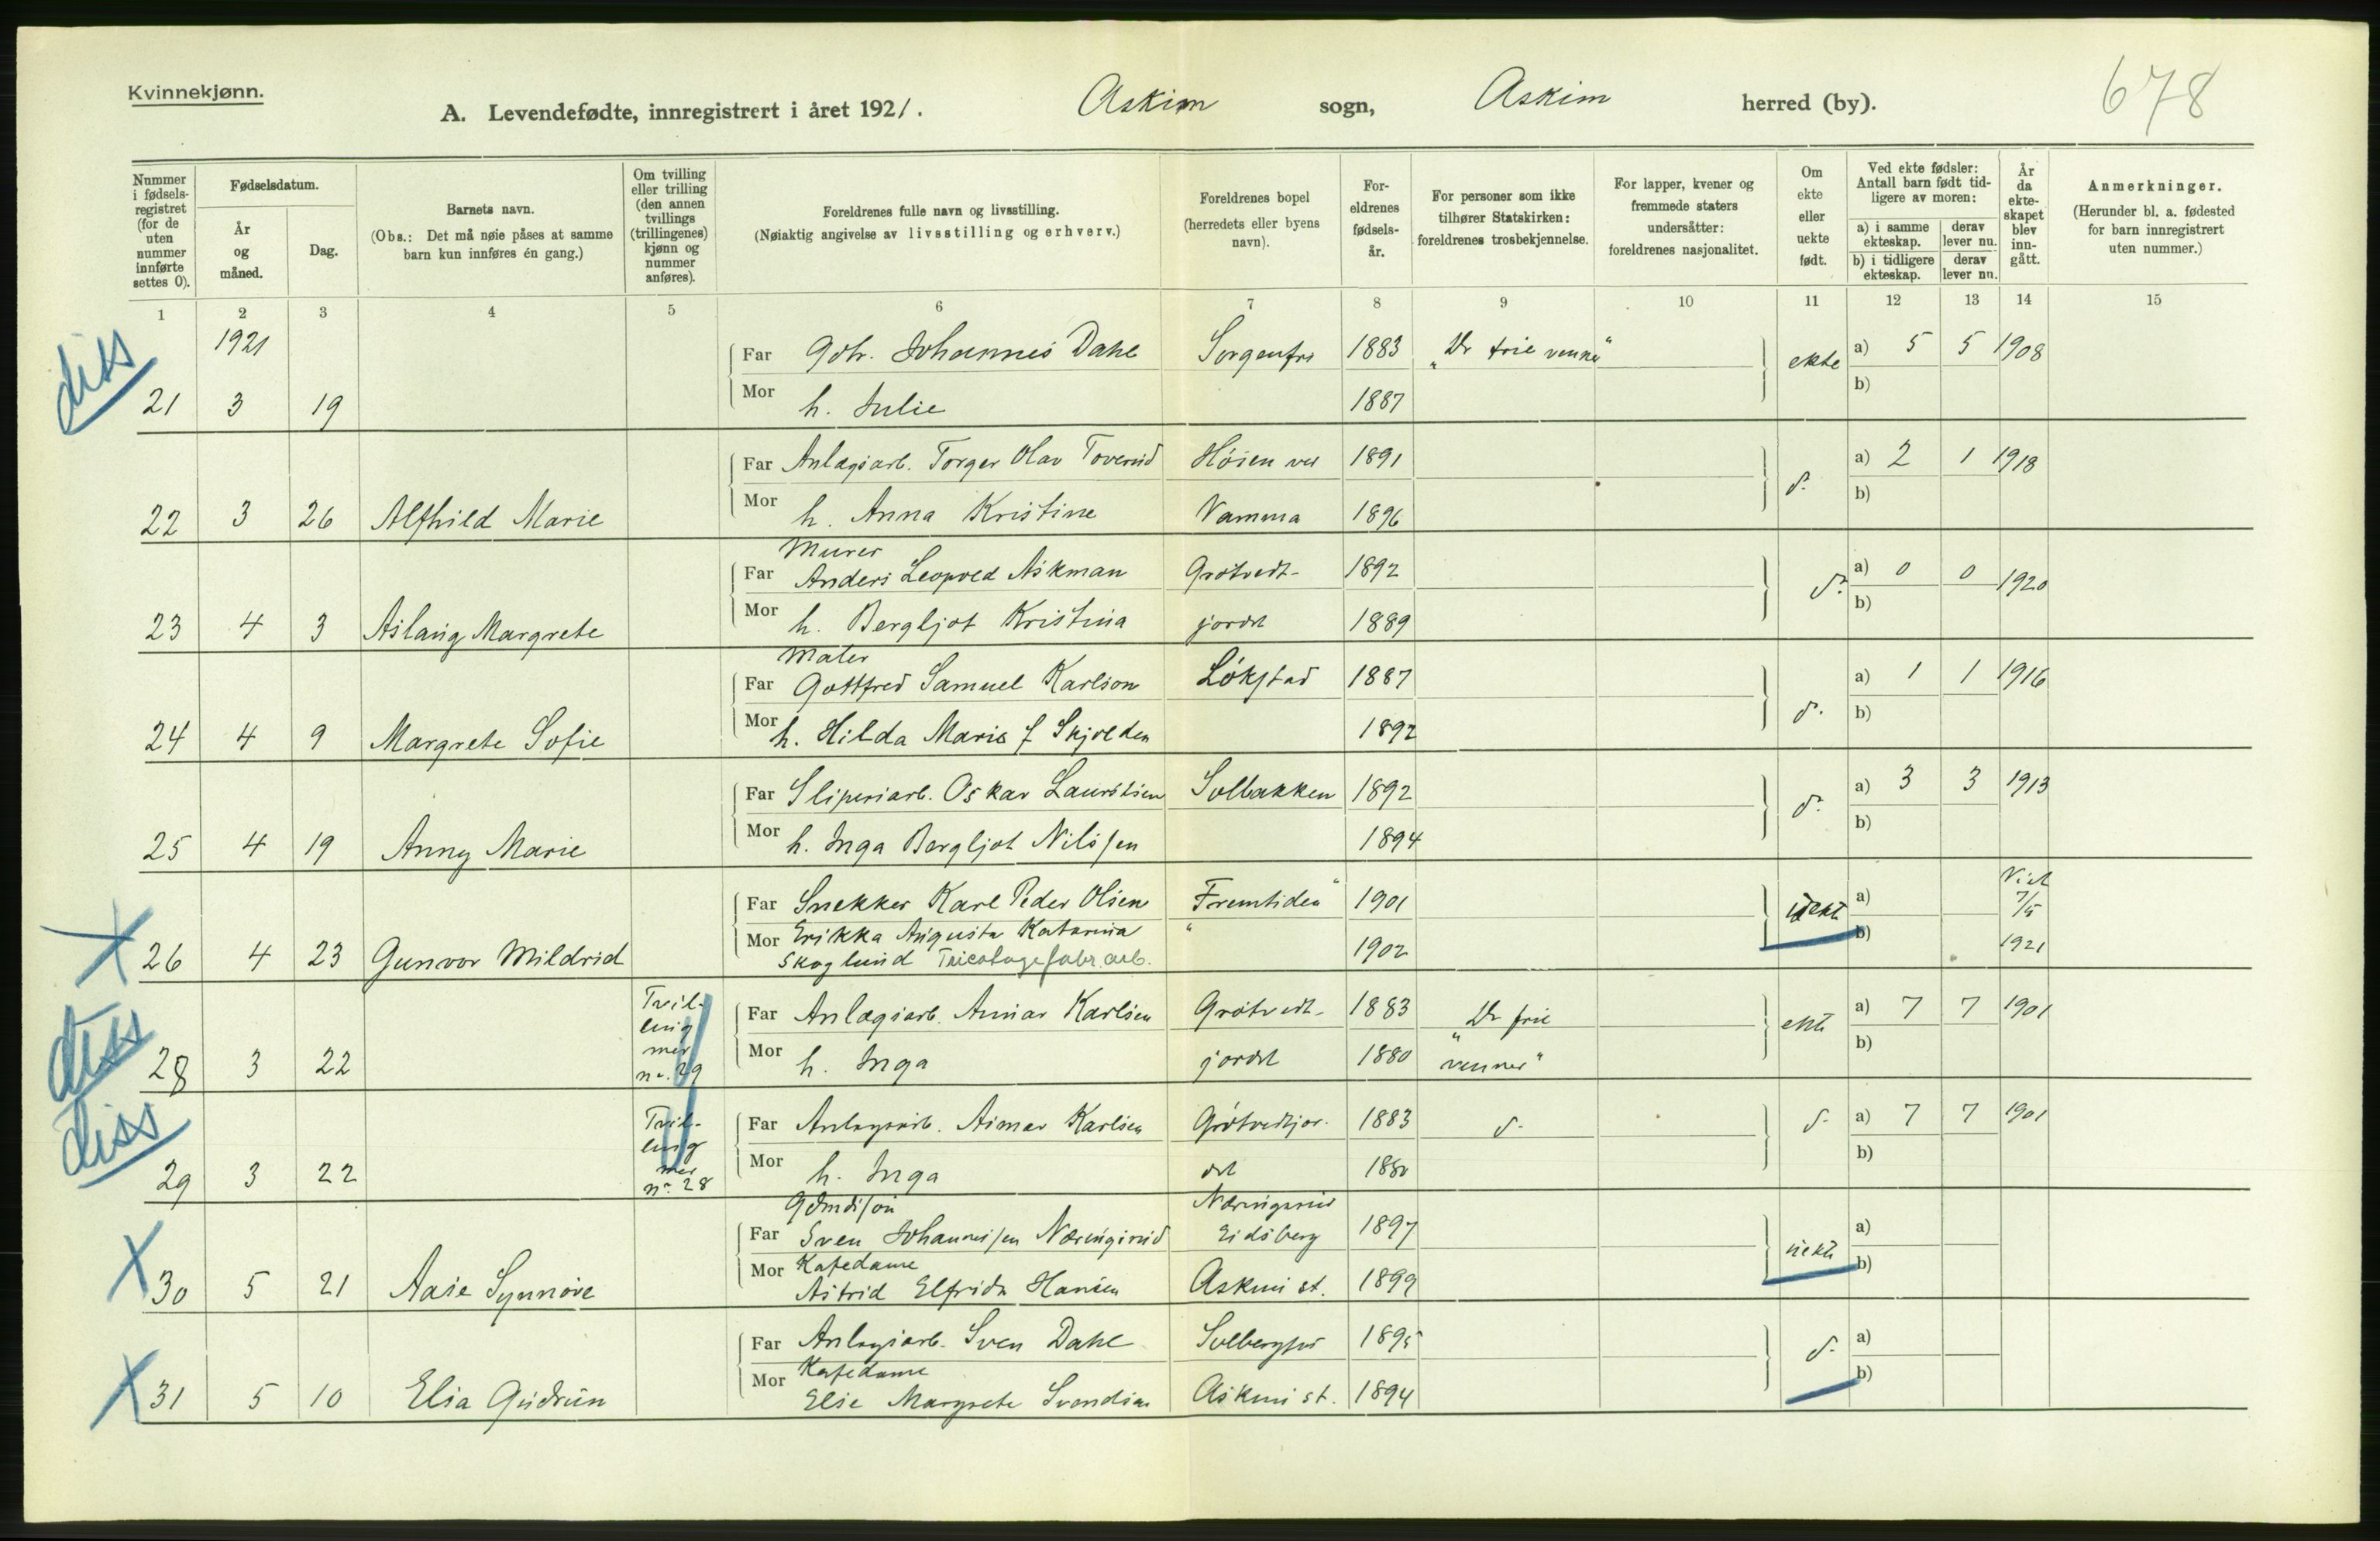 Kvinnekjønn.
A. Levendefødte, innregistrert i året 1921. Askim sogn, Askim herred (by). 678
Nummer i fødsels-registret (for de uten nummer innførte settes 0).
Fødselsdatum.
År og måned.
Dag.
Barnets navn.
(Obs.: Det må nøie påses at samme barn kun innføres én gang.)
Om tvilling eller trilling (den annen tvillings (trillingenes) kjønn og nummer anføres).
Foreldrenes fulle navn og livsstilling.
(Nøiaktig angivelse av livsstilling og erhverv.)
Foreldrenes bopel (herredets eller byens navn).
For-eldrenes fødsels-år.
For personer som ikke tilhører Statskirken: foreldrenes trosbekjennelse.
For lapper, kvener og fremmede staters undersåtter: foreldrenes nasjonalitet.
Om ekte eller uekte født.
Ved ekte fødsler: Antall barn født tid-ligere av moren:
a) i samme ekteskap. derav lever nu.
b) i tidligere ekteskap. derav lever nu.
År da ekte-skapet blev inn-gått.
Anmerkninger.
(Herunder bl. a. fødested for barn innregistrert uten nummer.)
1 2 3 4 5 6 7 8 9 10 11 12 13 14 15
diss 1921 Far Johannes Dahl 1883 "De frie venner" ekte a) 5 5 1908
21 3 19 Mor h. Julie 1887 b)
Far Anlægsarb. Torger Olav Toverud Høien ved 1891 d. a) 2 1 1918
22 3 26 Alfhild Marie Mor h. Anna Kristine Vamma 1896 b)
Murer
Far Anders Leopold Askman Grøtvedt- 1892 d. a) 0 0 1920
23 4 3 Aslaug Margrete Mor h. Bergljot Kristina jordet 1889 b)
Maler
Far Gottfred Samuel Karlson Løkstad 1887 d. a) 1 1 1916
24 4 9 Margrete Sofie Mor h. Hilda Marie f Skjolden 1892 b)
Far Sliperiarb. Oskar Lauritsen Solbakken 1892 d. a) 3 3 1913
25 4 19 Anny Marie Mor h. Inga Bergljot Nilssen 1894 b)
Far Snekker Karl Peder Olsen "Fremtiden" 1901 uekte a) Viet 7/5
26 4 23 Gunvor Mildrid Mor Erikka Augusta Katarina 1902 b) 1921
Skoglund Tricotagefabr.arb.
diss Tvilling med nr. 29 Far Anlægsarb. Karlsen Grøtvedt- 1883 "De frie ekte a) 7 7 1901
28 3 22 Mor h. Inga jordet 1880 venner" b)
diss Tvilling med nr. 28 Far Anlægsarb. Karlsen Grøtvedtjor- 1883 d. d. a) 7 7 1901
29 3 22 Mor h. Inga det 1880 b)
Far Sven Johannessen Eidsberg 1897 uekte a)
Kafedame
30 5 21 Aase Synnøve Mor Astrid Elfrida Hansen Askim st. 1899 b)
Far Anlægsarb. Sven Dahl Solbergfos 1895 d. a)
Kafedame
31 5 10 Elsa Gudrun Mor Else Margrete Svendsen Askim st. 1894 b)